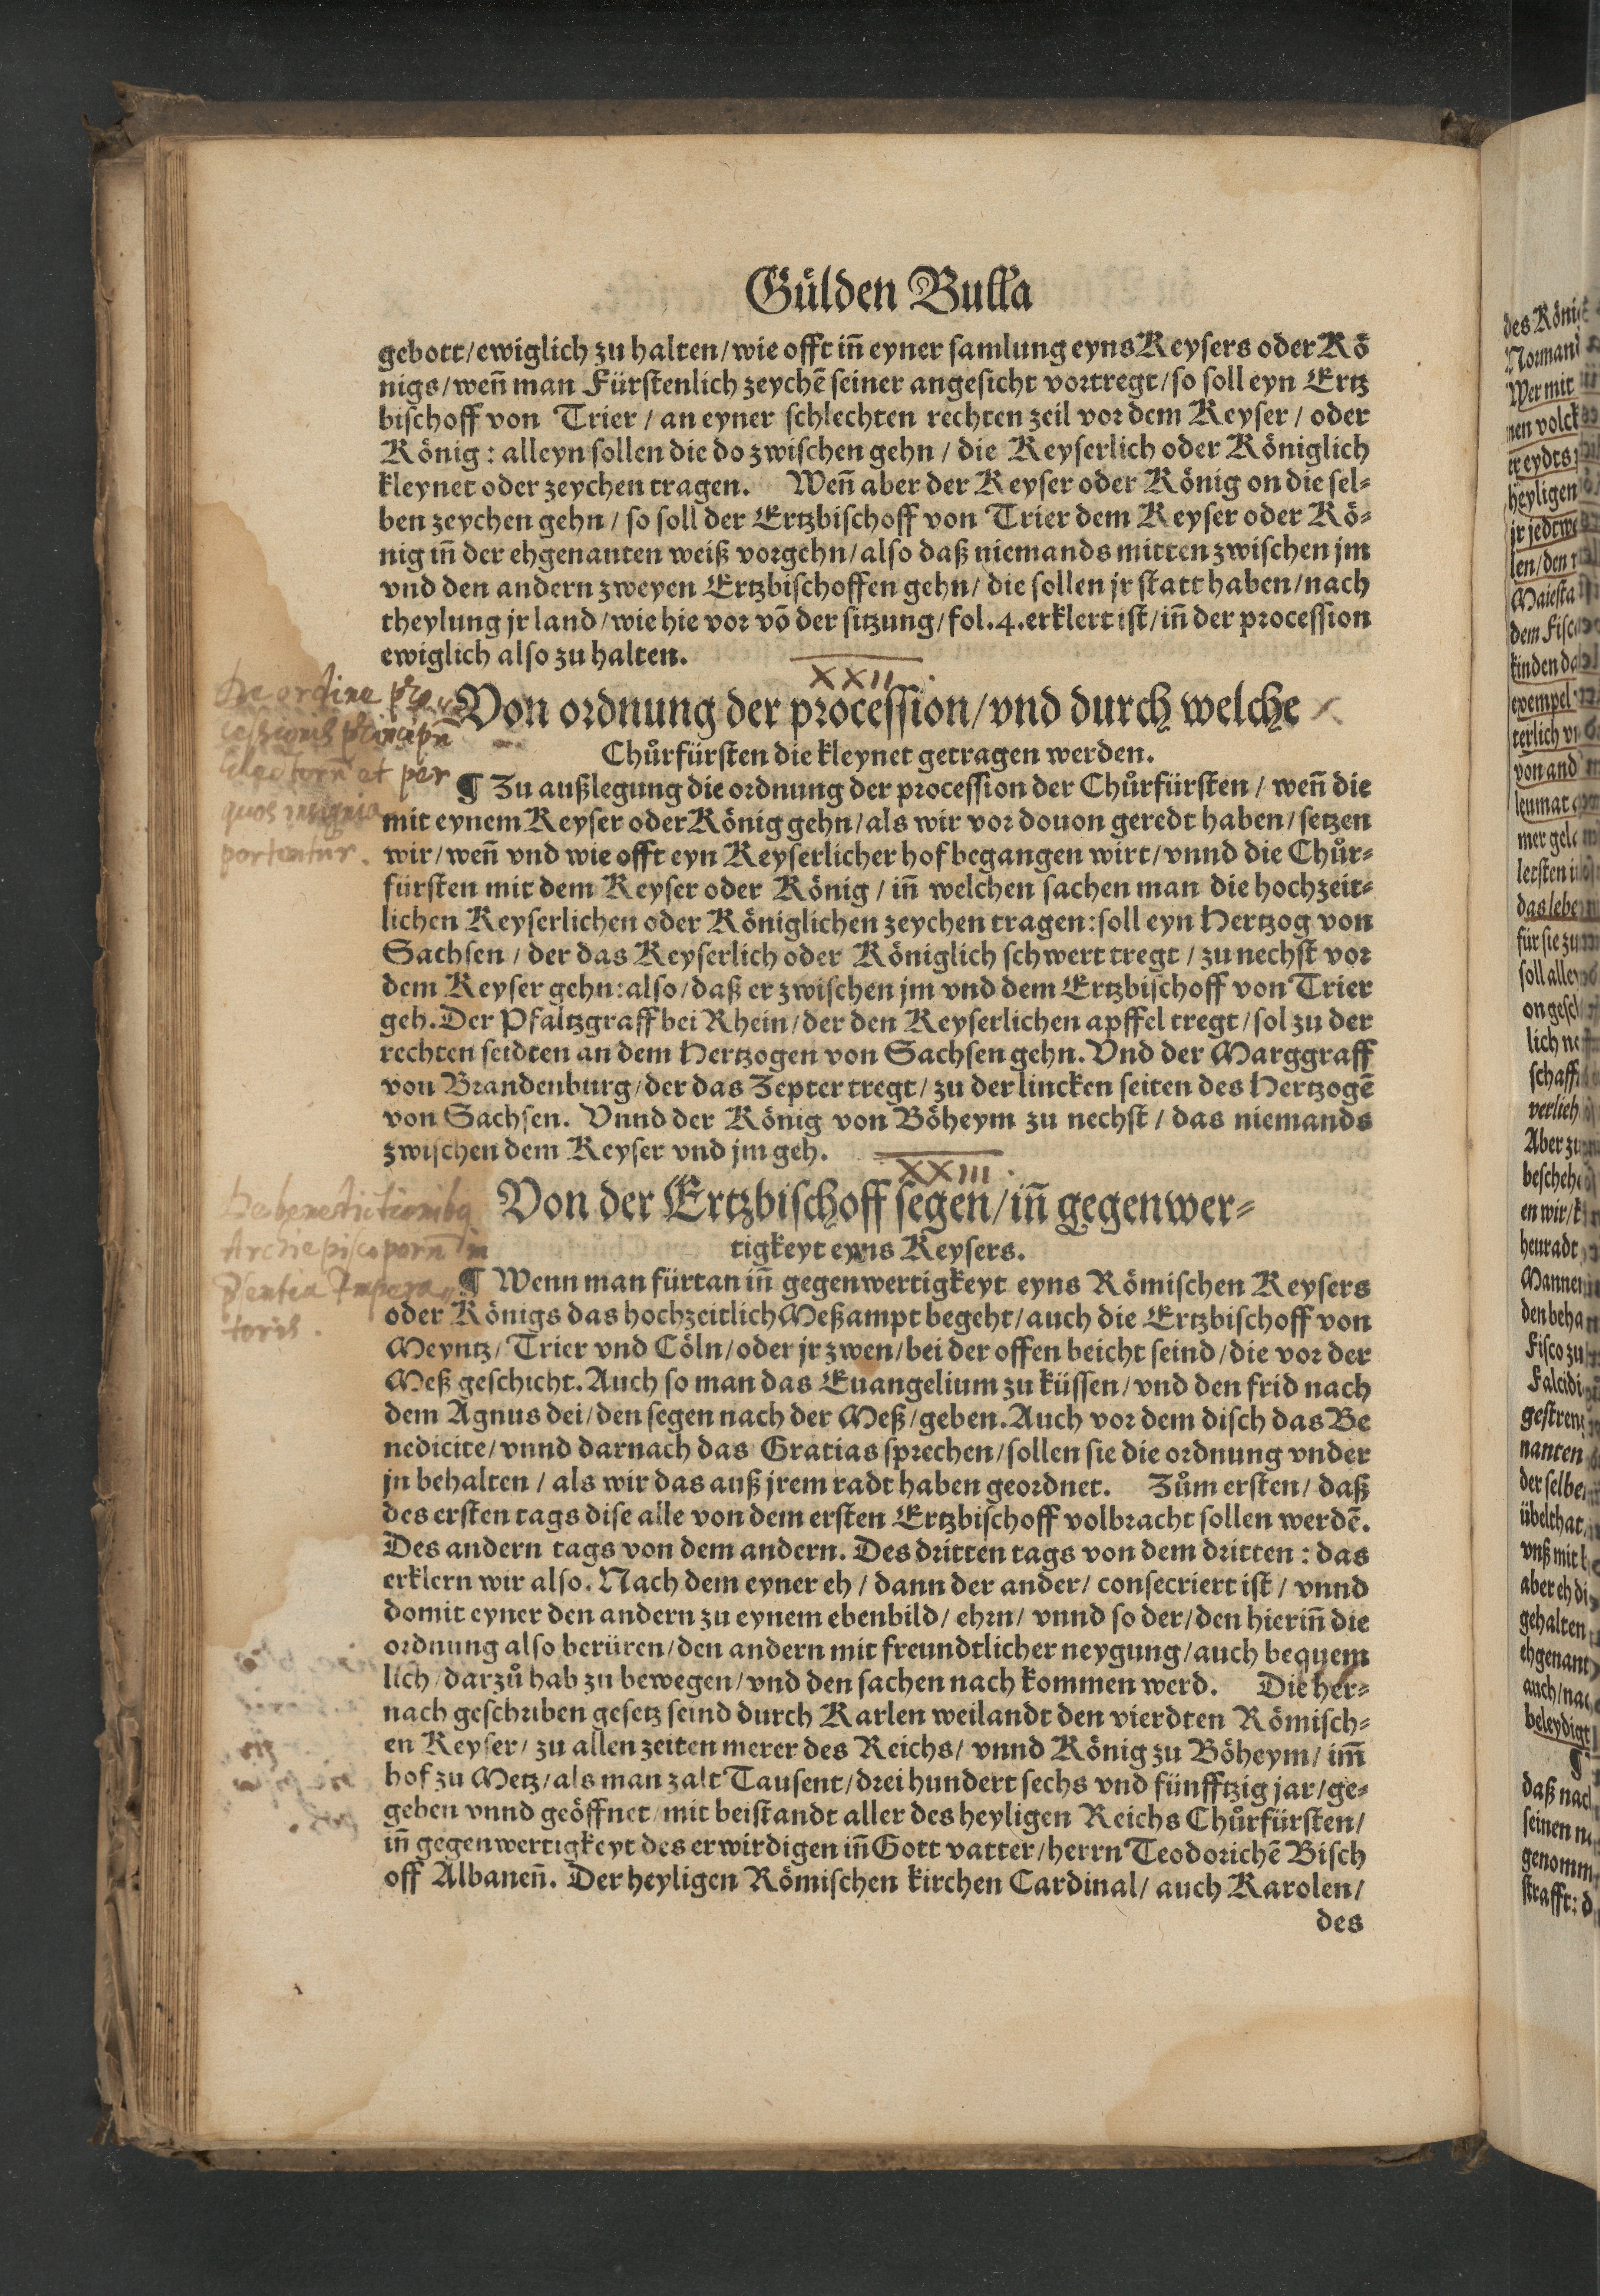 Gülden Bulla
gebott/ewiglich zu halten/wie offt iñ eyner samlung eyns Keysers oder Kö
nigs/weñ man Fürstenlich zeychẽ seiner angesicht vortregt/so soll eyn Ertz
bischoff von Trier/an eyner schlechten rechten zeil vor dem Keyser/oder
König: alleyn sollen die do zwischen gehn/die Keyserlich oder Königlich
kleynet oder zeychen tragen. Weñ aber der Keyser oder König on die sel=
ben zeychen gehn/so soll der Ertzbischoff von Trier dem Keyser oder Kö=
nig iñ der ehgenanten weiß vorgehn/also daß niemands mitten zwischen jm
vnd den andern zweyen Ertzbischoffen gehn/die sollen jr statt haben/nach
theylung jr land/wie hie vor võ der sitzung/fol.4.erklert ist/iñ der procession
ewiglich also zu halten.
XXII.
De ordine pro
cessionis principũ
Electorũ et per
quos insignia
portentur.
Von ordnung der procession/vnd durch welche
Chůrfürsten die kleynet getragen werden.
¶ Zu außlegung die ordnung der procession der Chůrfürsten/weñ die
mit eynem Keyser oder König gehn/als wir vor douon geredt haben/setzen
wir/weñ vnd wie offt eyn Keyserlicher hof begangen wirt/vnnd die Chůr=
fürsten mit dem Keyser oder König/iñ welchen sachen man die hochzeit=
lichen Keyserlichen oder Königlichen zeychen tragen: soll eyn Hertzog von
Sachsen/der das Keyserlich oder Königlich schwert tregt/zu nechst vor
dem Keyser gehn: also/daß er zwischen jm vnd dem Ertzbischoff von Trier
geh. Der Pfaltzgraff bei Rhein/der den Keyserlichen apffel tregt/sol zu der
rechten seidten an dem Hertzogen von Sachsen gehn. Vnd der Marggraff
von Brandenburg/der das Zepter tregt/zu der lincken seiten des Hertzogẽ
von Sachsen. Vnnd der König von Böheym zu nechst/das niemands
zwischen dem Keyser vnd jm geh.
XXIII.
De benedictionibꝫ
Archiepiscoporũ in
Imperatoris.
Von der Ertzbischoff segen/iñ gegenwer=
tigkeyt eyns Keysers.
¶ Wenn man fürtan iñ gegenwertigkeyt eyns Römischen Keysers
oder Königs das hochzeitlich Meßampt begeht/auch die Ertzbischoff von
Meyntz/Trier vnd Cöln/oder jr zwen/bei der offen beicht seind/die vor der
Meß geschicht. Auch so man das Euangelium zu küssen/vnd den frid nach
dem Agnus dei/den segen nach der Meß/geben. Auch vor dem disch das Be
nedicite/vnnd darnach das Gratias sprechen/sollen sie die ordnung vnder
jn behalten/als wir das auß jrem radt haben geordnet. Zům ersten/daß
des ersten tags dise alle von dem ersten Ertzbischoff volbracht sollen werdẽ.
Des andern tags von dem andern. Des dritten tags von dem dritten: das
erklern wir also. Nach dem eyner eh/dann der ander/consecriert ist/vnnd
domit eyner den andern zu eynem ebenbild/ehrn/vnnd so der/den hieriñ die
ordnung also berüren/den andern mit freundtlicher neygung/auch bequem
lich/darzů hab zu bewegen/vnd den sachen nach kommen werd. Die her=
nach geschriben gesetz seind durch Karlen weilandt den vierdten Römisch=
en Keyser/zu allen zeiten merer des Reichs/vnnd König zu Böheym/im̃
hof zu Metz/als man zalt Tausent/drei hundert sechs vnd fünfftzig jar/ge=
geben vnnd geöffnet/mit beistandt aller des heyligen Reichs Chůrfürsten/
iñ gegenwertigkeyt des erwirdigen iñ Gott vatter/herrn Teodorichẽ Bisch
off Albaneñ. Der heyligen Römischen kirchen Cardinal/auch Karolen/
des